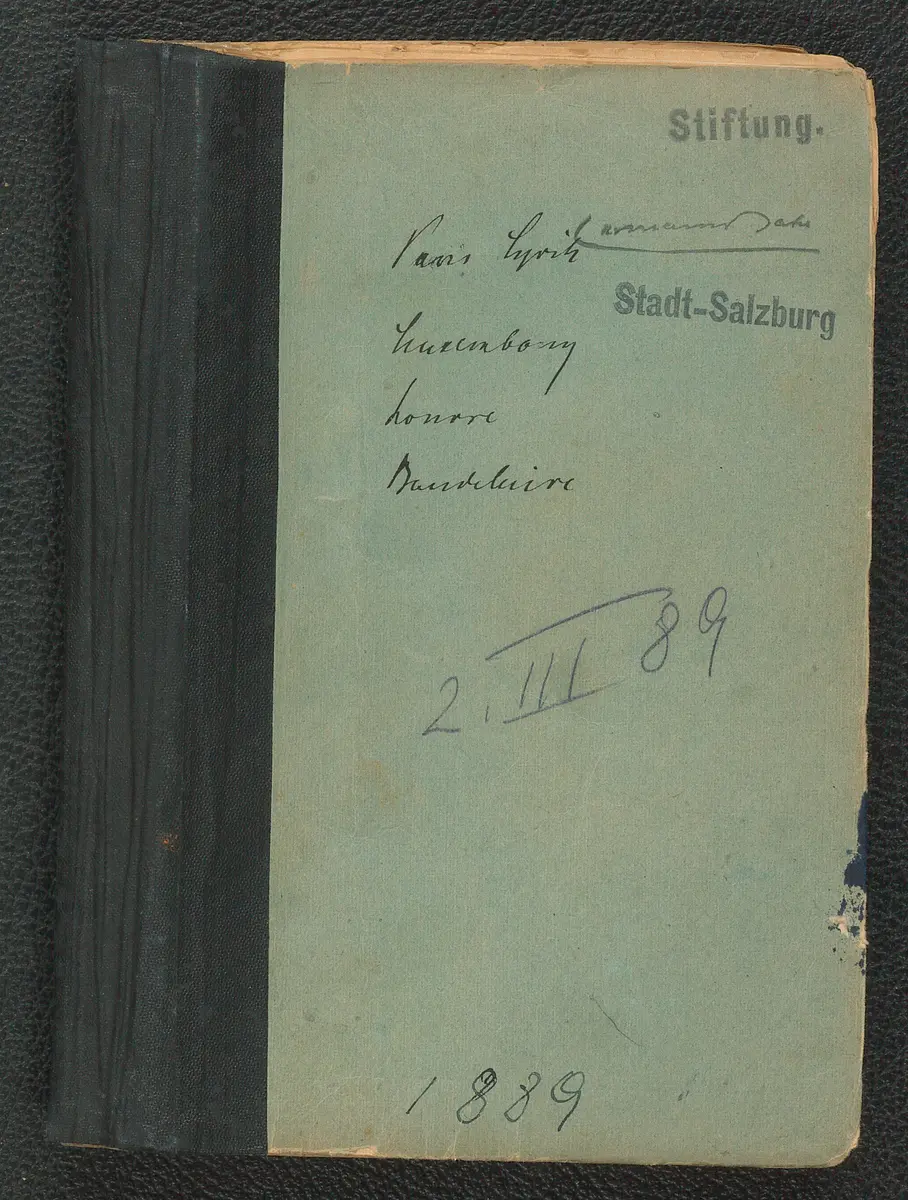 Stiftung.
Hermann Bahr
Stadt-Salzburg
Paris Lyrik
Luxembourg
Louvre
Baudelaire
2. III 89
1889